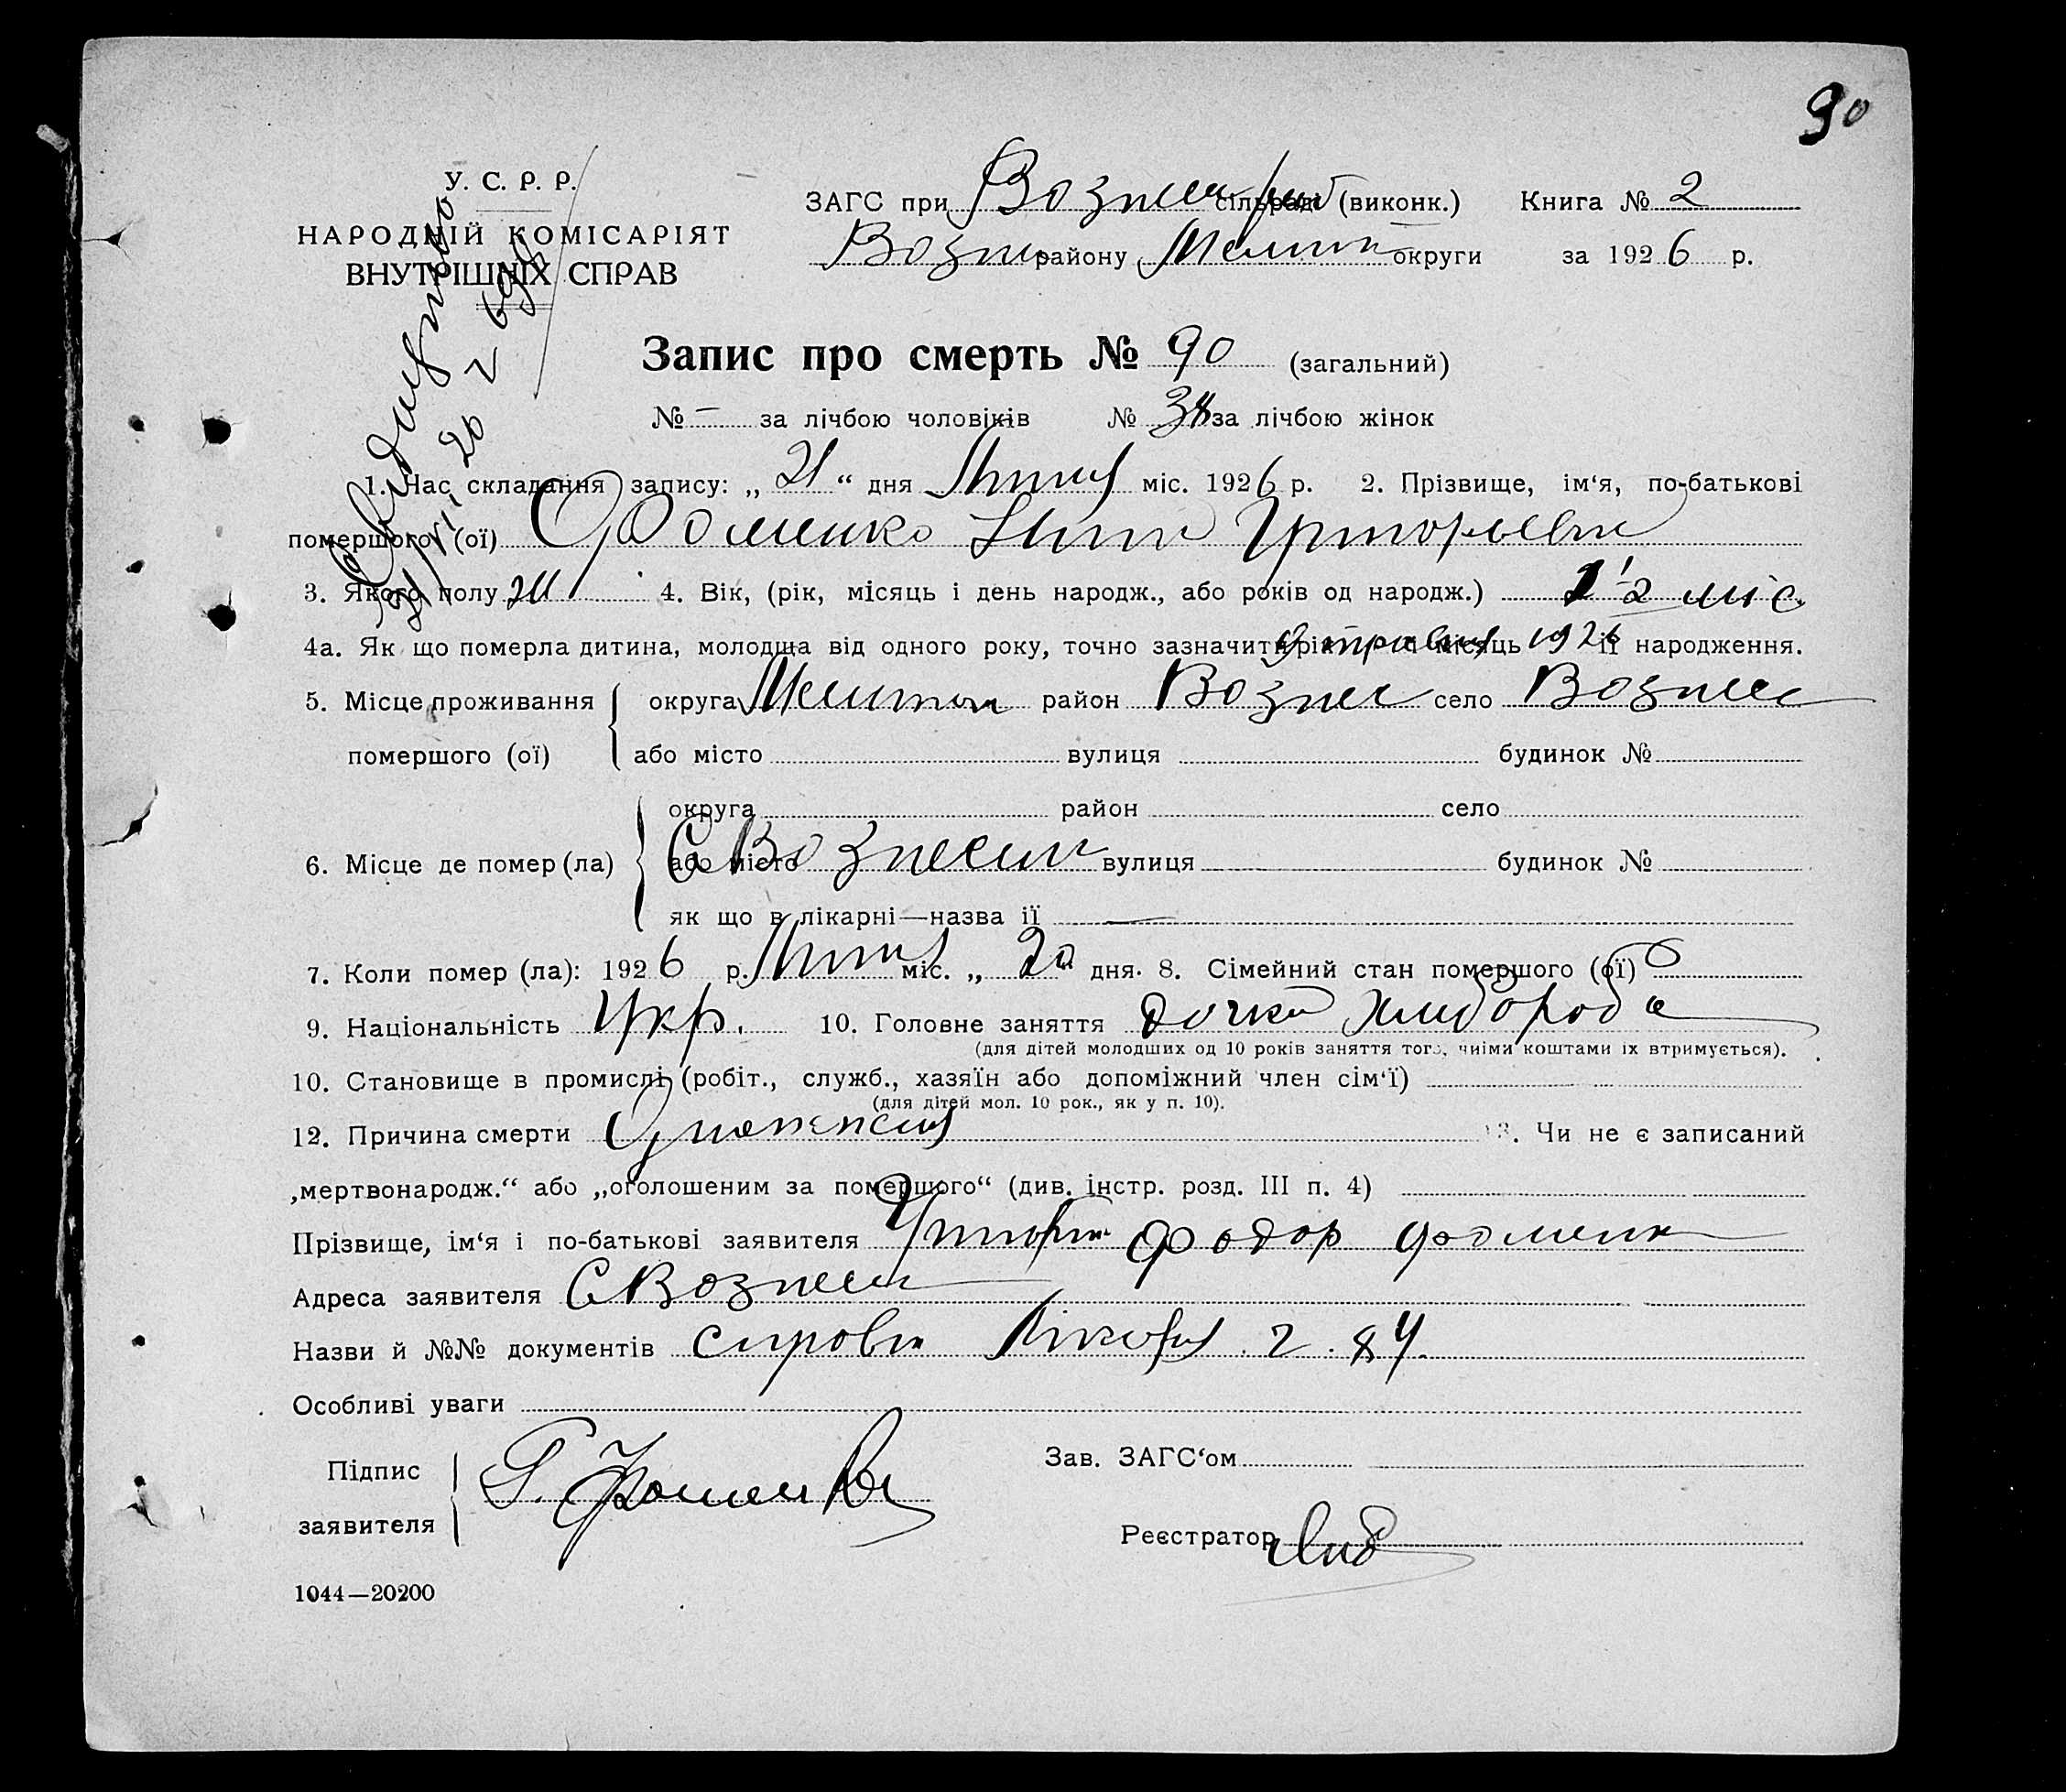 90
У. С. Р. Р.
НАРОДНІЙ КОМІСАРІЯТ
ВНУТРІШНІХ СПРАВ
ЗАГС при Вознес сільраді (виконк.) Книга № 2
Вознес району Мелит округи за 1926 р.
Запис про смерть № 90 (загальний)
№ — за лічбою чоловіків № 38 за лічбою жінок
1. Час складання запису: „21“ дня Липня міс. 1926 р. 2. Прізвище, ім‘я, по-батькові
помершого (ої) Фоменко Нина Григорьевна
3. Якого полу ж 4. Вік, (рік, місяць і день народж., або років од народж.) 1 1/2 міс
4а. Як що померла дитина, молодща від одного року, точно зазначити рік і місяць її народження. 9 травня 1926
5. Місце проживання округа Мелитоп район Вознес село Вознес
помершого (ої) або місто вулиця будинок №
округа район село
6. Місце де помер (ла) або місто С Вознесен вулиця будинок №
як що в лікарні—назва її —
7. Коли помер (ла): 1926 р. Липня міс. „20“ дня. 8. Сімейний стан помершого (ої)
9. Національність Укр. 10. Головне заняття дочка хлибороба
(для дітей молодших од 10 років заняття того, чиїми коштами їх втримується).
10. Становище в промислі (робіт., служб., хазяїн або допоміжний член сім‘ї)
(для дітей мол. 10 рок., як у п. 10).
12. Причина смерти 13. Чи не є записаний
„мертвонародж.“ або „оголошеним за помершого“ (див. інстр. розд. III п. 4)
Прізвище, ім‘я і по-батькові заявителя Григорій Фодор Фоменк
Адреса заявителя С Вознесен
Назви й №№ документів справка Лікаря 284
Особливі уваги
Підпис Г. Фоменко Зав. ЗАГС‘ом
заявителя Реєстратор
1044—20200